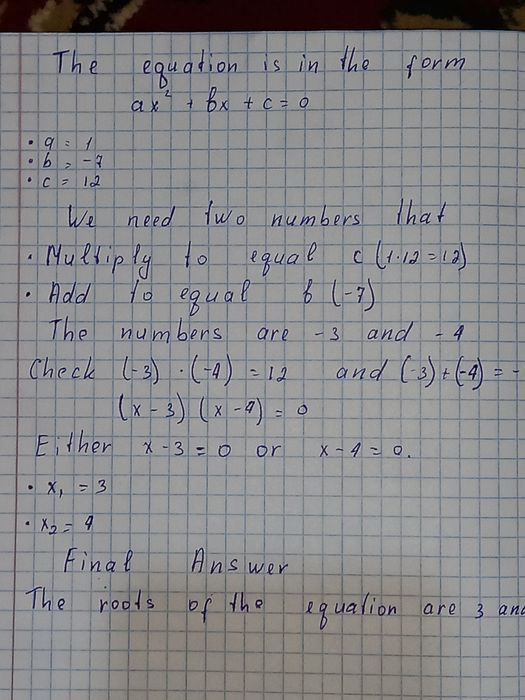 The equation is in the form
ax² + bx + c = 0
• a = 1
• b = -7
• c = 12
We need two numbers that
• Multiply to equal c (1·12 = 12)
• Add to equal b (-7)
The numbers are -3 and -4
Check (-3) · (-4) = 12 and (-3) + (-4) = -
(x - 3) (x - 4) = 0
Either x - 3 = 0 or x - 4 = 0.
• x₁ = 3
• x₂ = 4
Final Answer
The roots of the equation are 3 and